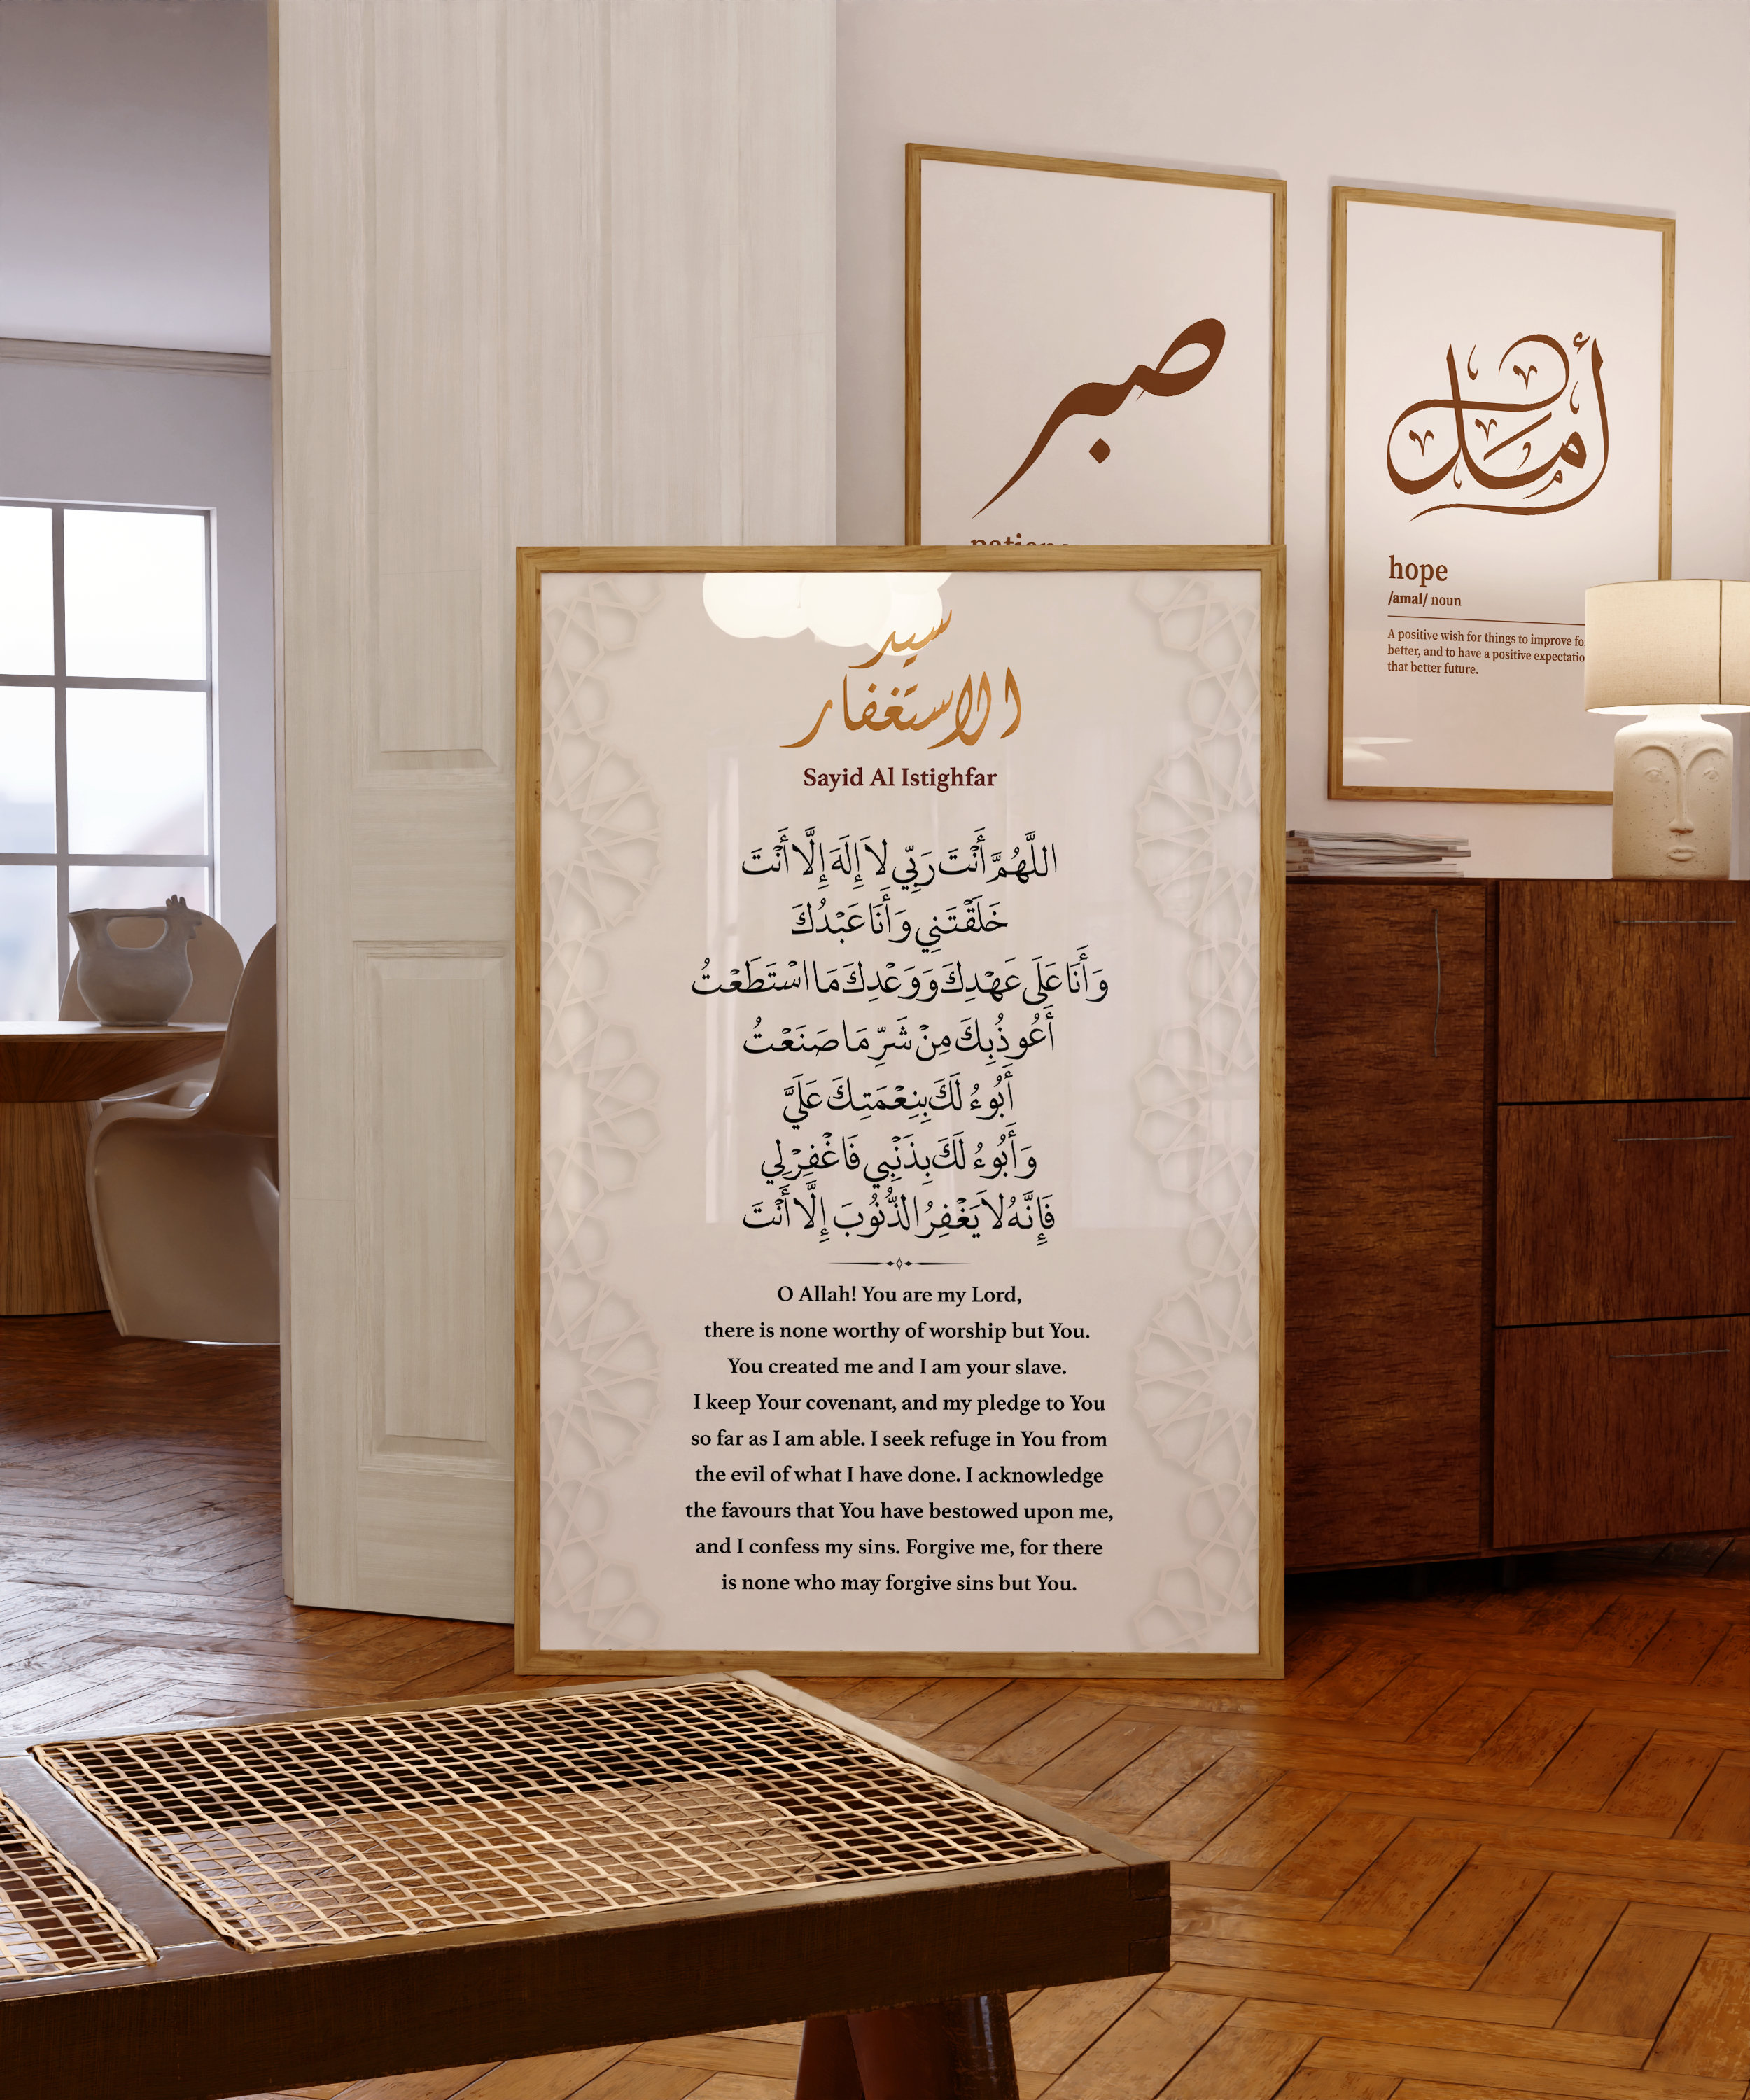 صبر
patience
أمل
hope
/amal/ noun
A positive wish for things to improve
better, and to have a positive
that better future.
سيد
الاستغفار
Sayid Al Istighfar
اللَّهُمَّ أَنْتَ رَبِّي لاَ إِلَهَ إِلَّا أَنْتَ
خَلَقْتَنِي وَأَنَا عَبْدُكَ
وَأَنَا عَلَى عَهْدِكَ وَوَعْدِكَ مَا اسْتَطَعْتُ
أَعُوذُ بِكَ مِنْ شَرِّ مَا صَنَعْتُ
أَبُوءُ لَكَ بِنِعْمَتِكَ عَلَيَّ
وَأَبُوءُ لَكَ بِذَنْبِي فَاغْفِرْ لِي
فَإِنَّهُ لاَ يَغْفِرُ الذُّنُوبَ إِلَّا أَنْتَ
O Allah! You are my Lord,
there is none worthy of worship but You.
You created me and I am your slave.
I keep Your covenant, and my pledge to You
so far as I am able. I seek refuge in You from
the evil of what I have done. I acknowledge
the favours that You have bestowed upon me,
and I confess my sins. Forgive me, for there
is none who may forgive sins but You.